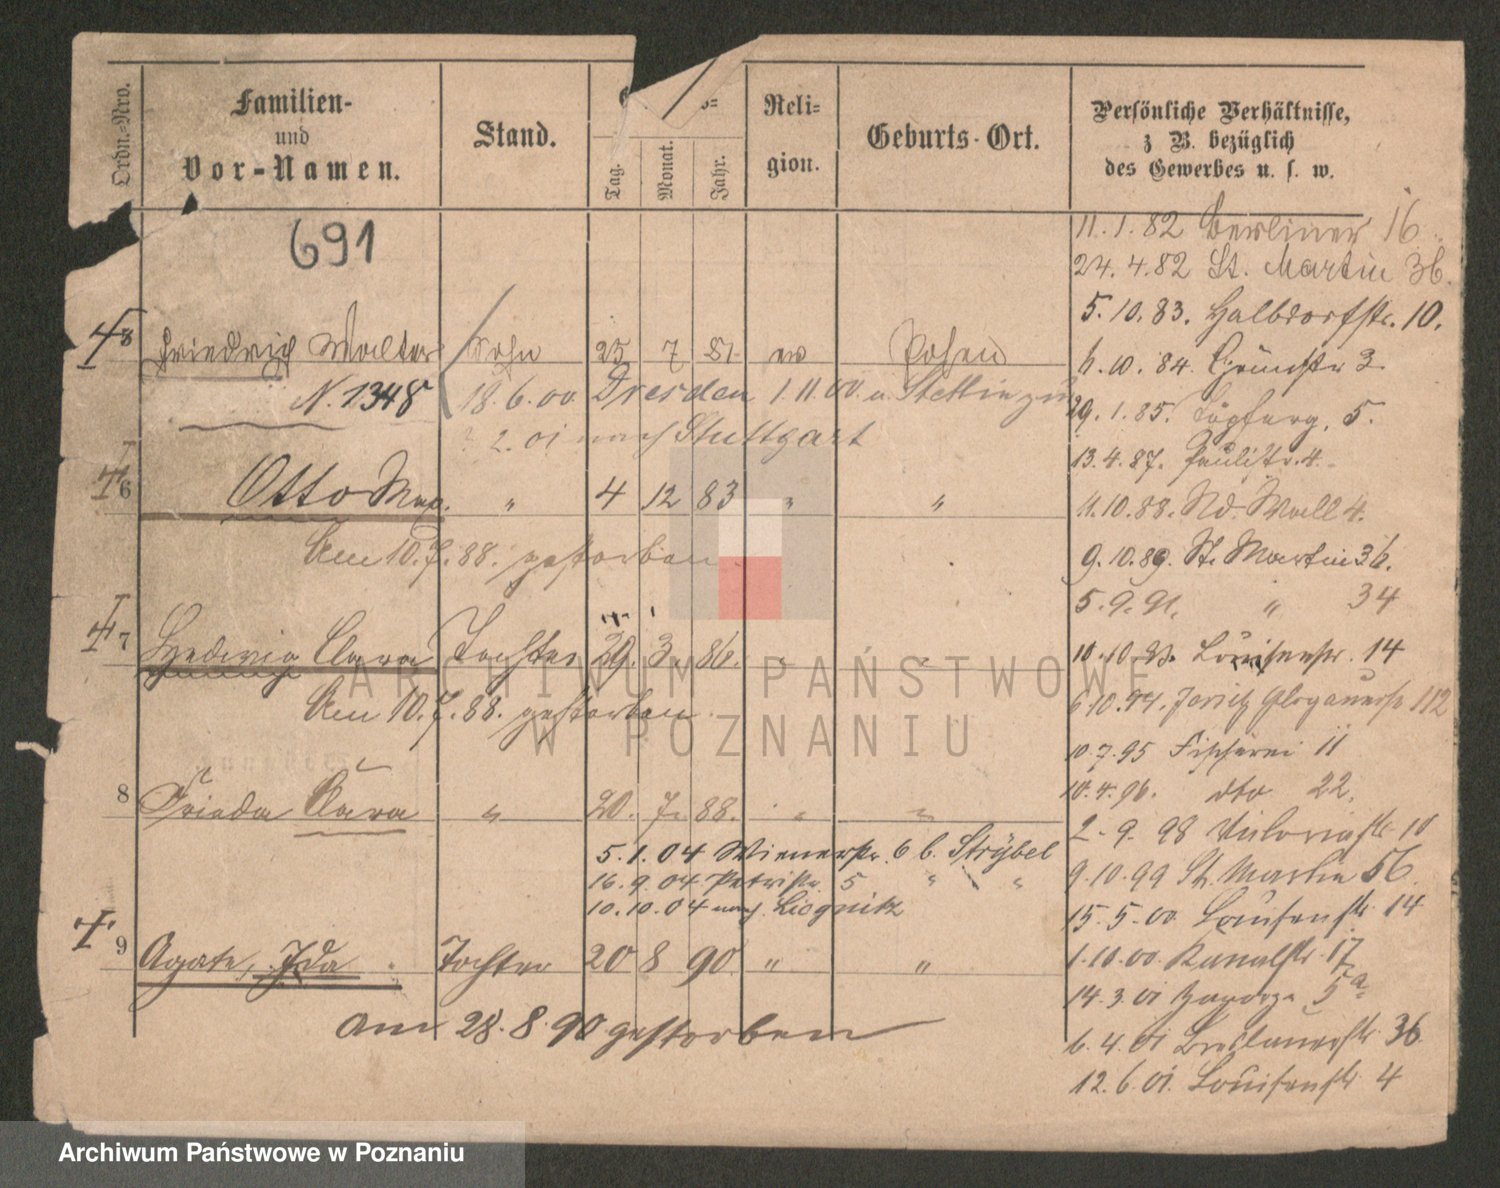 Ordn.-Nro.
Familien-
und
Vor-Namen.
Stand.
Tag.
Monat.
Jahr.
Reli-
gion.
Geburts-Ort.
Persönliche Verhältnisse,
z. B. bezüglich
des Gewerbes u. s. w.
691
Friedrich Walter Sohn 25 7 81. ev Posen
N. 1348 18.6.00 Dresden 1.11.00. u. Stettin zu
2.01 nach Stuttgart
6 Otto Max. " 4 12 83 " "
Am 10.7.88. gestorben
7 Hedwig Clara Tochter 29. 3. 86. " "
Am 10.7.88. gestorben.
8 Frieda Clara " 20. 7. 88. " "
5.1.04 Wienerstr. 6 b. Strÿbel
16.9.04 Petristr. 5 " "
10.10.04 nach Liegnitz
9 Agate, Ida. Tochter 20 8 90. " "
am 28.8.90 gestorben
11.1.82 Berliner 16
24.4.82 St. Martin 36.
5.10.83. Halbdorfstr. 10.
10.84. 3
29.1.85. Töpferg. 5.
13.4.87. Paulistr. 4.
10.88. Nd. Wall 4.
9.10.89. St. Martin 36.
5.9.91. " 34
10.10. Louisenstr. 14
6.10.94. Jersitz Glogauerstr 112
10.7.95 Fischerei 11
4.96. dto 22.
2.9.98 Victoriastr. 10
9.10.99 St. Martin 56.
15.5.00 Louisenstr. 14
1.10.00. Kanalstr. 17
14.3.01 5a
6.4.01 Breslauerstr 36
12.6.01. Louisenstr. 4
ARCHIWUM PAŃSTWOWE
W POZNANIU
Archiwum Państwowe w Poznaniu